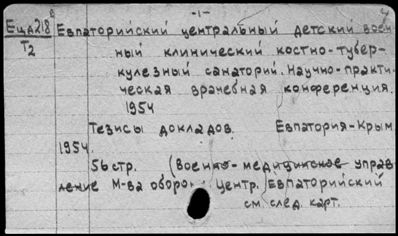 -1-
Ещ218 Евпаторийский центральный детский воен
Т2 ный клинический костно-тубер-
кулезный санаторий. Научно-практи-
ческая врачебная конференция.
1954
Тезисы докладов. Евпатория-Крым
1954.
56стр. (Военно-медицинское управ-
ление М-ва оборо Центр. Евпаторийский
см. след. карт.